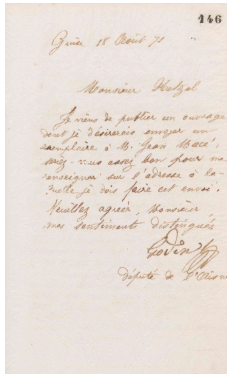 146
Guise 18 Août 71
Monsieur Hetzel
Je viens de publier un ouvrage
dont je désirerais envoyer un
exemplaire à M. Jean Macé,
seriez-vous assez bon pour me
renseigner sur l'adresse à la-
quelle je dois faire cet envoi.
Veuillez agréer, Monsieur,
mes sentiments distingués
Godin
député de l'Aisne